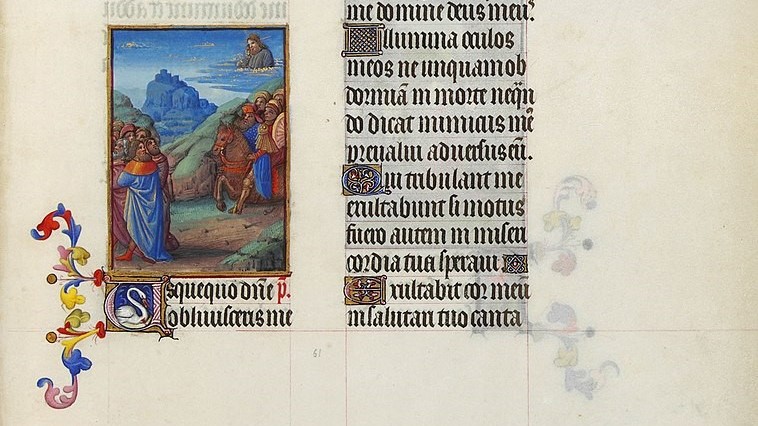 Usquequo dñe p̃.
obliuisceris me
me domine deus meus.
Illumina oculos
meos ne unquam ob
dormiã in morte neq̃n
do dicat inimicus me⁹
p̃eualui aduersus eũ.
Qui tribulant me
exultabunt si motus
fuero autem in miseri
cordia tua speraui
Exultabit cor meũ
in salutari tuo canta
61